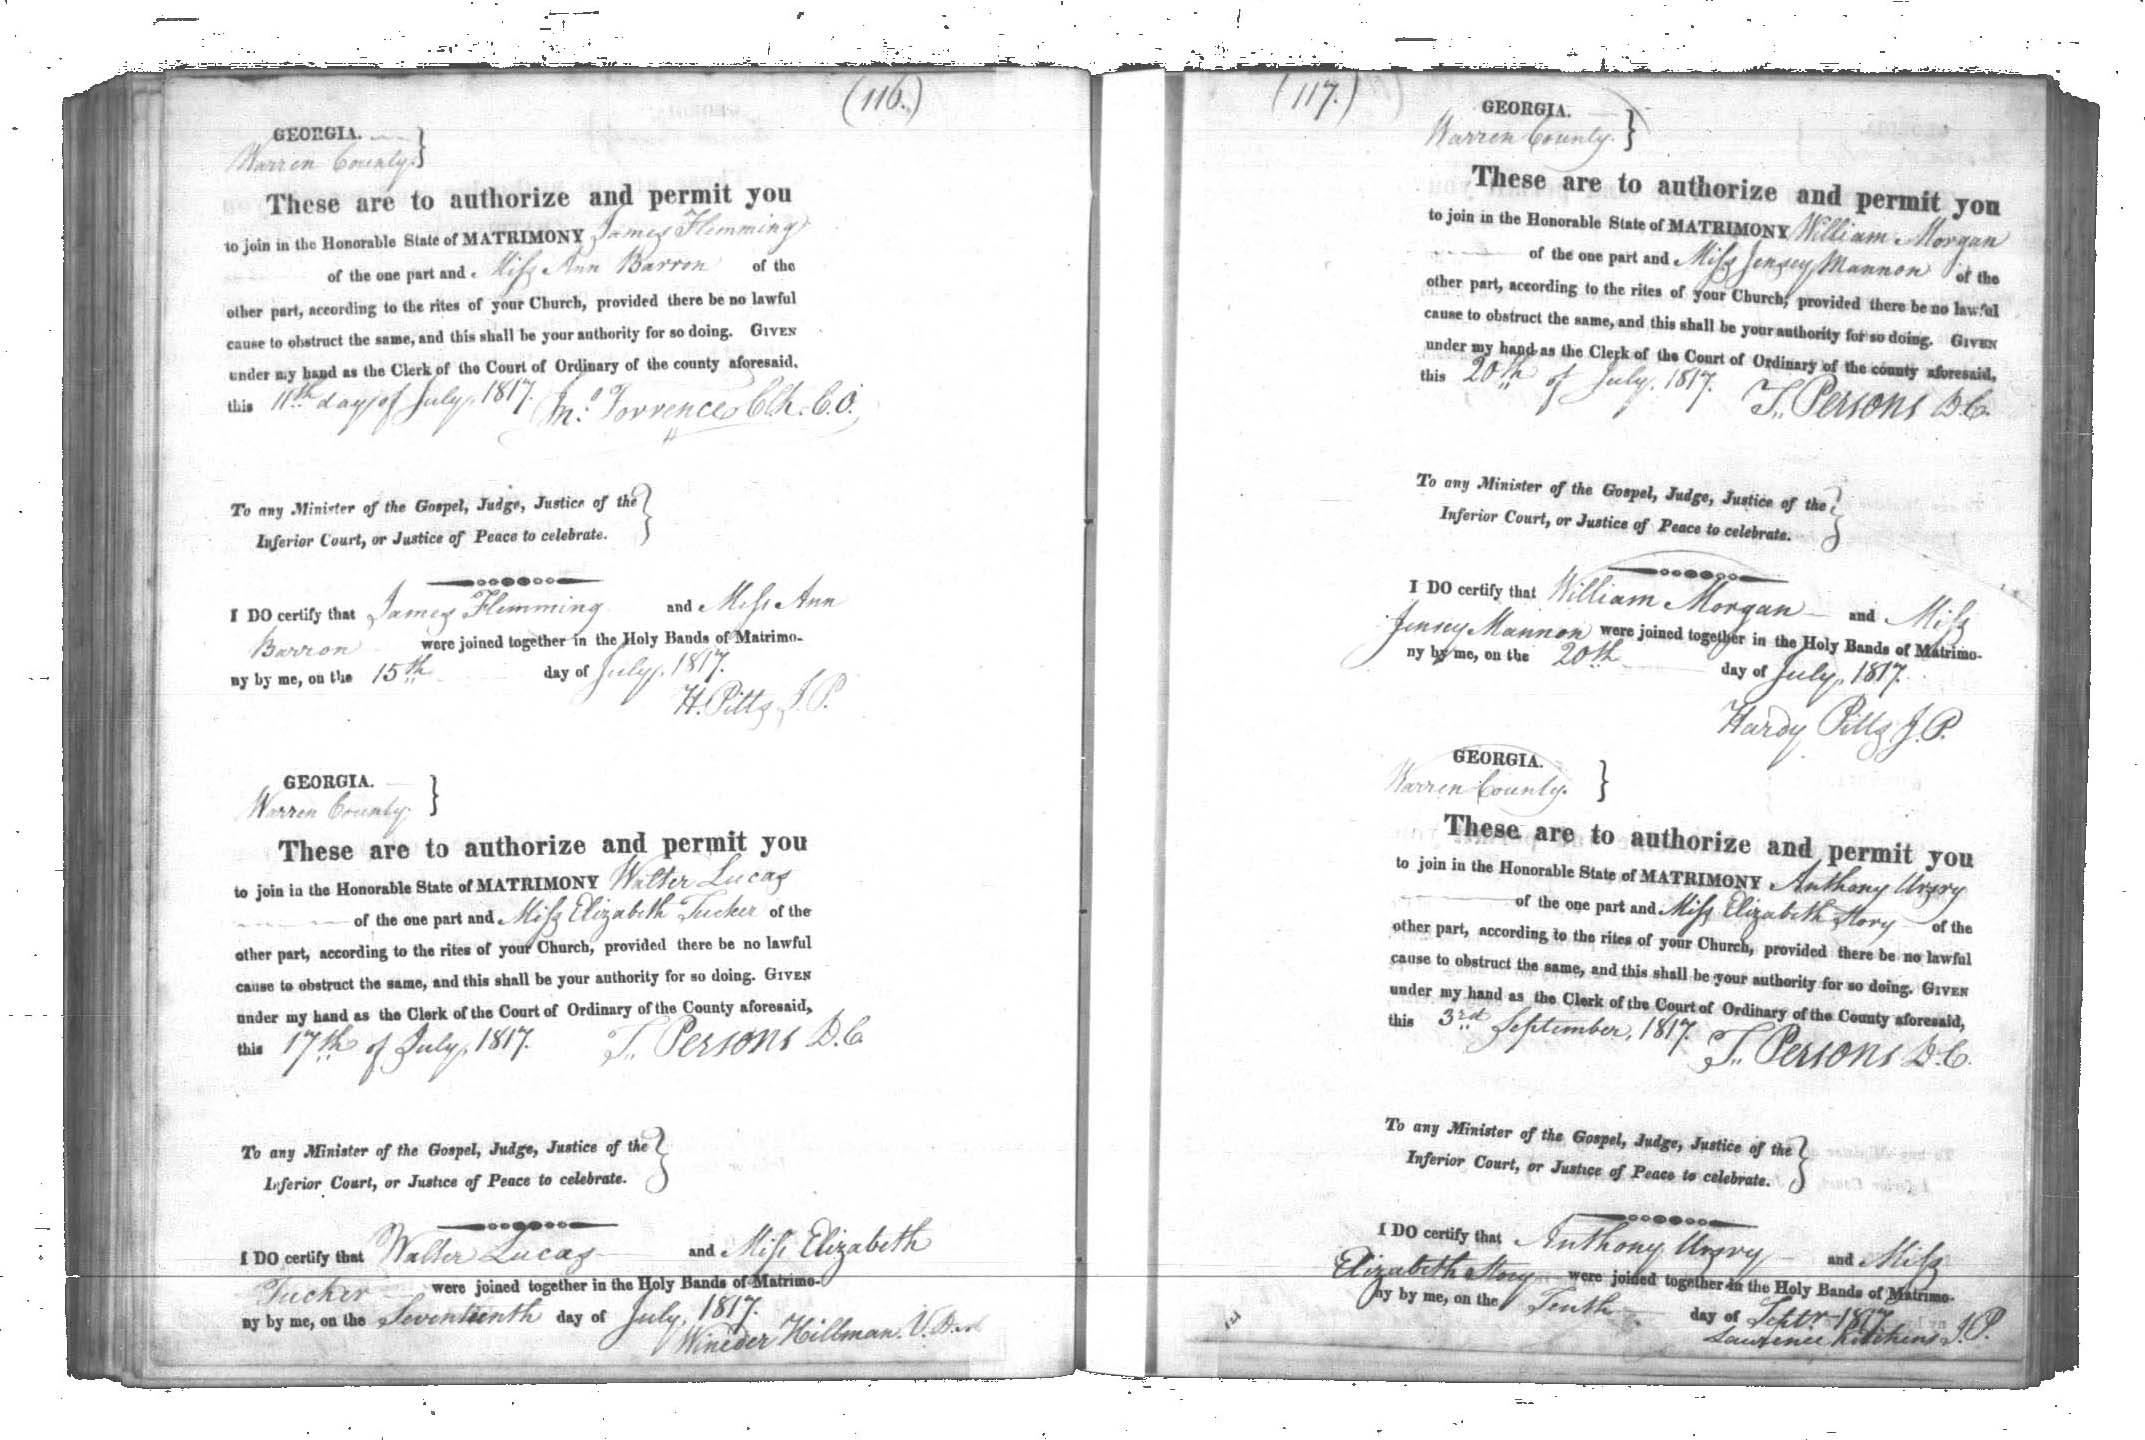 (116.)
GEORGIA.
Warren County.
These are to authorize and permit you
to join in the Honorable State of MATRIMONY James Flemming
of the one part and Miss Ann Barron of the
other part, according to the rites of your Church, provided there be no lawful
cause to obstruct the same, and this shall be your authority for so doing. GIVEN
under my hand as the Clerk of the Court of Ordinary of the county aforesaid,
this 11th day of July, 1817. Jno. Torrence Clk. C.O.
To any Minister of the Gospel, Judge, Justice of the
Inferior Court, or Justice of Peace to celebrate.
I DO certify that James Flemming and Miss Ann
Barron were joined together in the Holy Bands of Matrimo-
ny by me, on the 15th day of July, 1817.
H. Pitts J.P.
GEORGIA.
Warren County.
These are to authorize and permit you
to join in the Honorable State of MATRIMONY Walter Lucas
of the one part and Miss Elizabeth Tucker of the
other part, according to the rites of your Church, provided there be no lawful
cause to obstruct the same, and this shall be your authority for so doing. GIVEN
under my hand as the Clerk of the Court of Ordinary of the County aforesaid,
this 17th of July, 1817. T. Persons D.C.
To any Minister of the Gospel, Judge, Justice of the
Inferior Court, or Justice of Peace to celebrate.
I DO certify that Walter Lucas and Miss Elizabeth
Tucker were joined together in the Holy Bands of Matrimo-
ny by me, on the Seventeenth day of July, 1817.
Wineder Hillman
(117.)
GEORGIA.
Warren County.
These are to authorize and permit you
to join in the Honorable State of MATRIMONY William Morgan
of the one part and Miss Jensey Mannon of the
other part, according to the rites of your Church, provided there be no lawful
cause to obstruct the same, and this shall be your authority for so doing. GIVEN
under my hand as the Clerk of the Court of Ordinary of the county aforesaid,
this 20th of July, 1817. T. Persons D.C.
To any Minister of the Gospel, Judge, Justice of the
Inferior Court, or Justice of Peace to celebrate.
I DO certify that William Morgan and Miss
Jensey Mannon were joined together in the Holy Bands of Matrimo-
ny by me, on the 20th day of July, 1817.
Hardy Pitts J.P.
GEORGIA.
Warren County.
These are to authorize and permit you
to join in the Honorable State of MATRIMONY Anthony Ursry
of the one part and Miss Elizabeth Story of the
other part, according to the rites of your Church, provided there be no lawful
cause to obstruct the same, and this shall be your authority for so doing. GIVEN
under my hand as the Clerk of the Court of Ordinary of the County aforesaid,
this 3rd September, 1817. T. Persons D.C.
To any Minister of the Gospel, Judge, Justice of the
Inferior Court, or Justice of Peace to celebrate.
I DO certify that Anthony Ursry and Miss
Elizabeth Story were joined together in the Holy Bands of Matrimo-
ny by me, on the Tenth day of Septr 1817.
Lawrence Kitchens J.P.